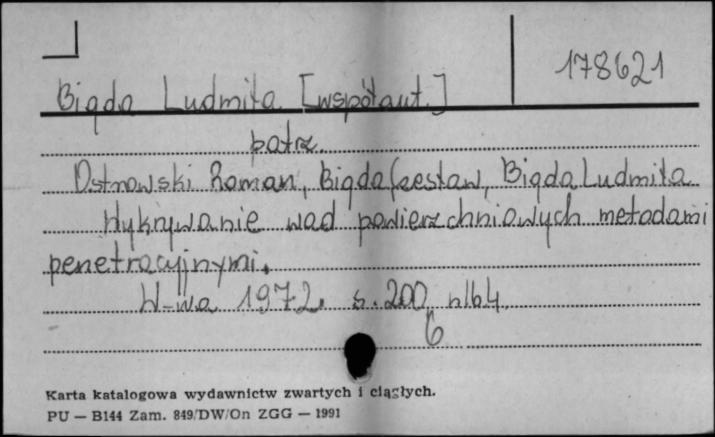 178621
Bigda Ludmiła [współaut.]
patrz
Ostrowski Roman, Bigda Czesław, Bigda Ludmiła
Wykrywanie wad powierzchniowych metodami
penetracyjnymi.
W-wa 1972. s. 200 nlb4
6
Karta katalogowa wydawnictw zwartych i ciągłych.
PU — B144 Zam. 849/DW/On ZGG — 1991